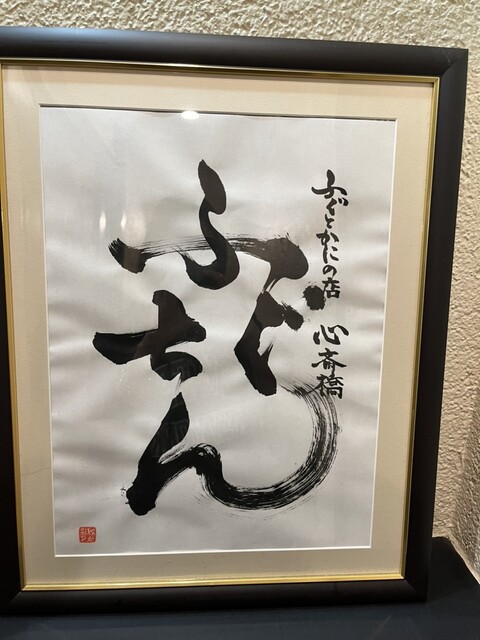 ふぐとかにの店 心斎橋
ふぐちん